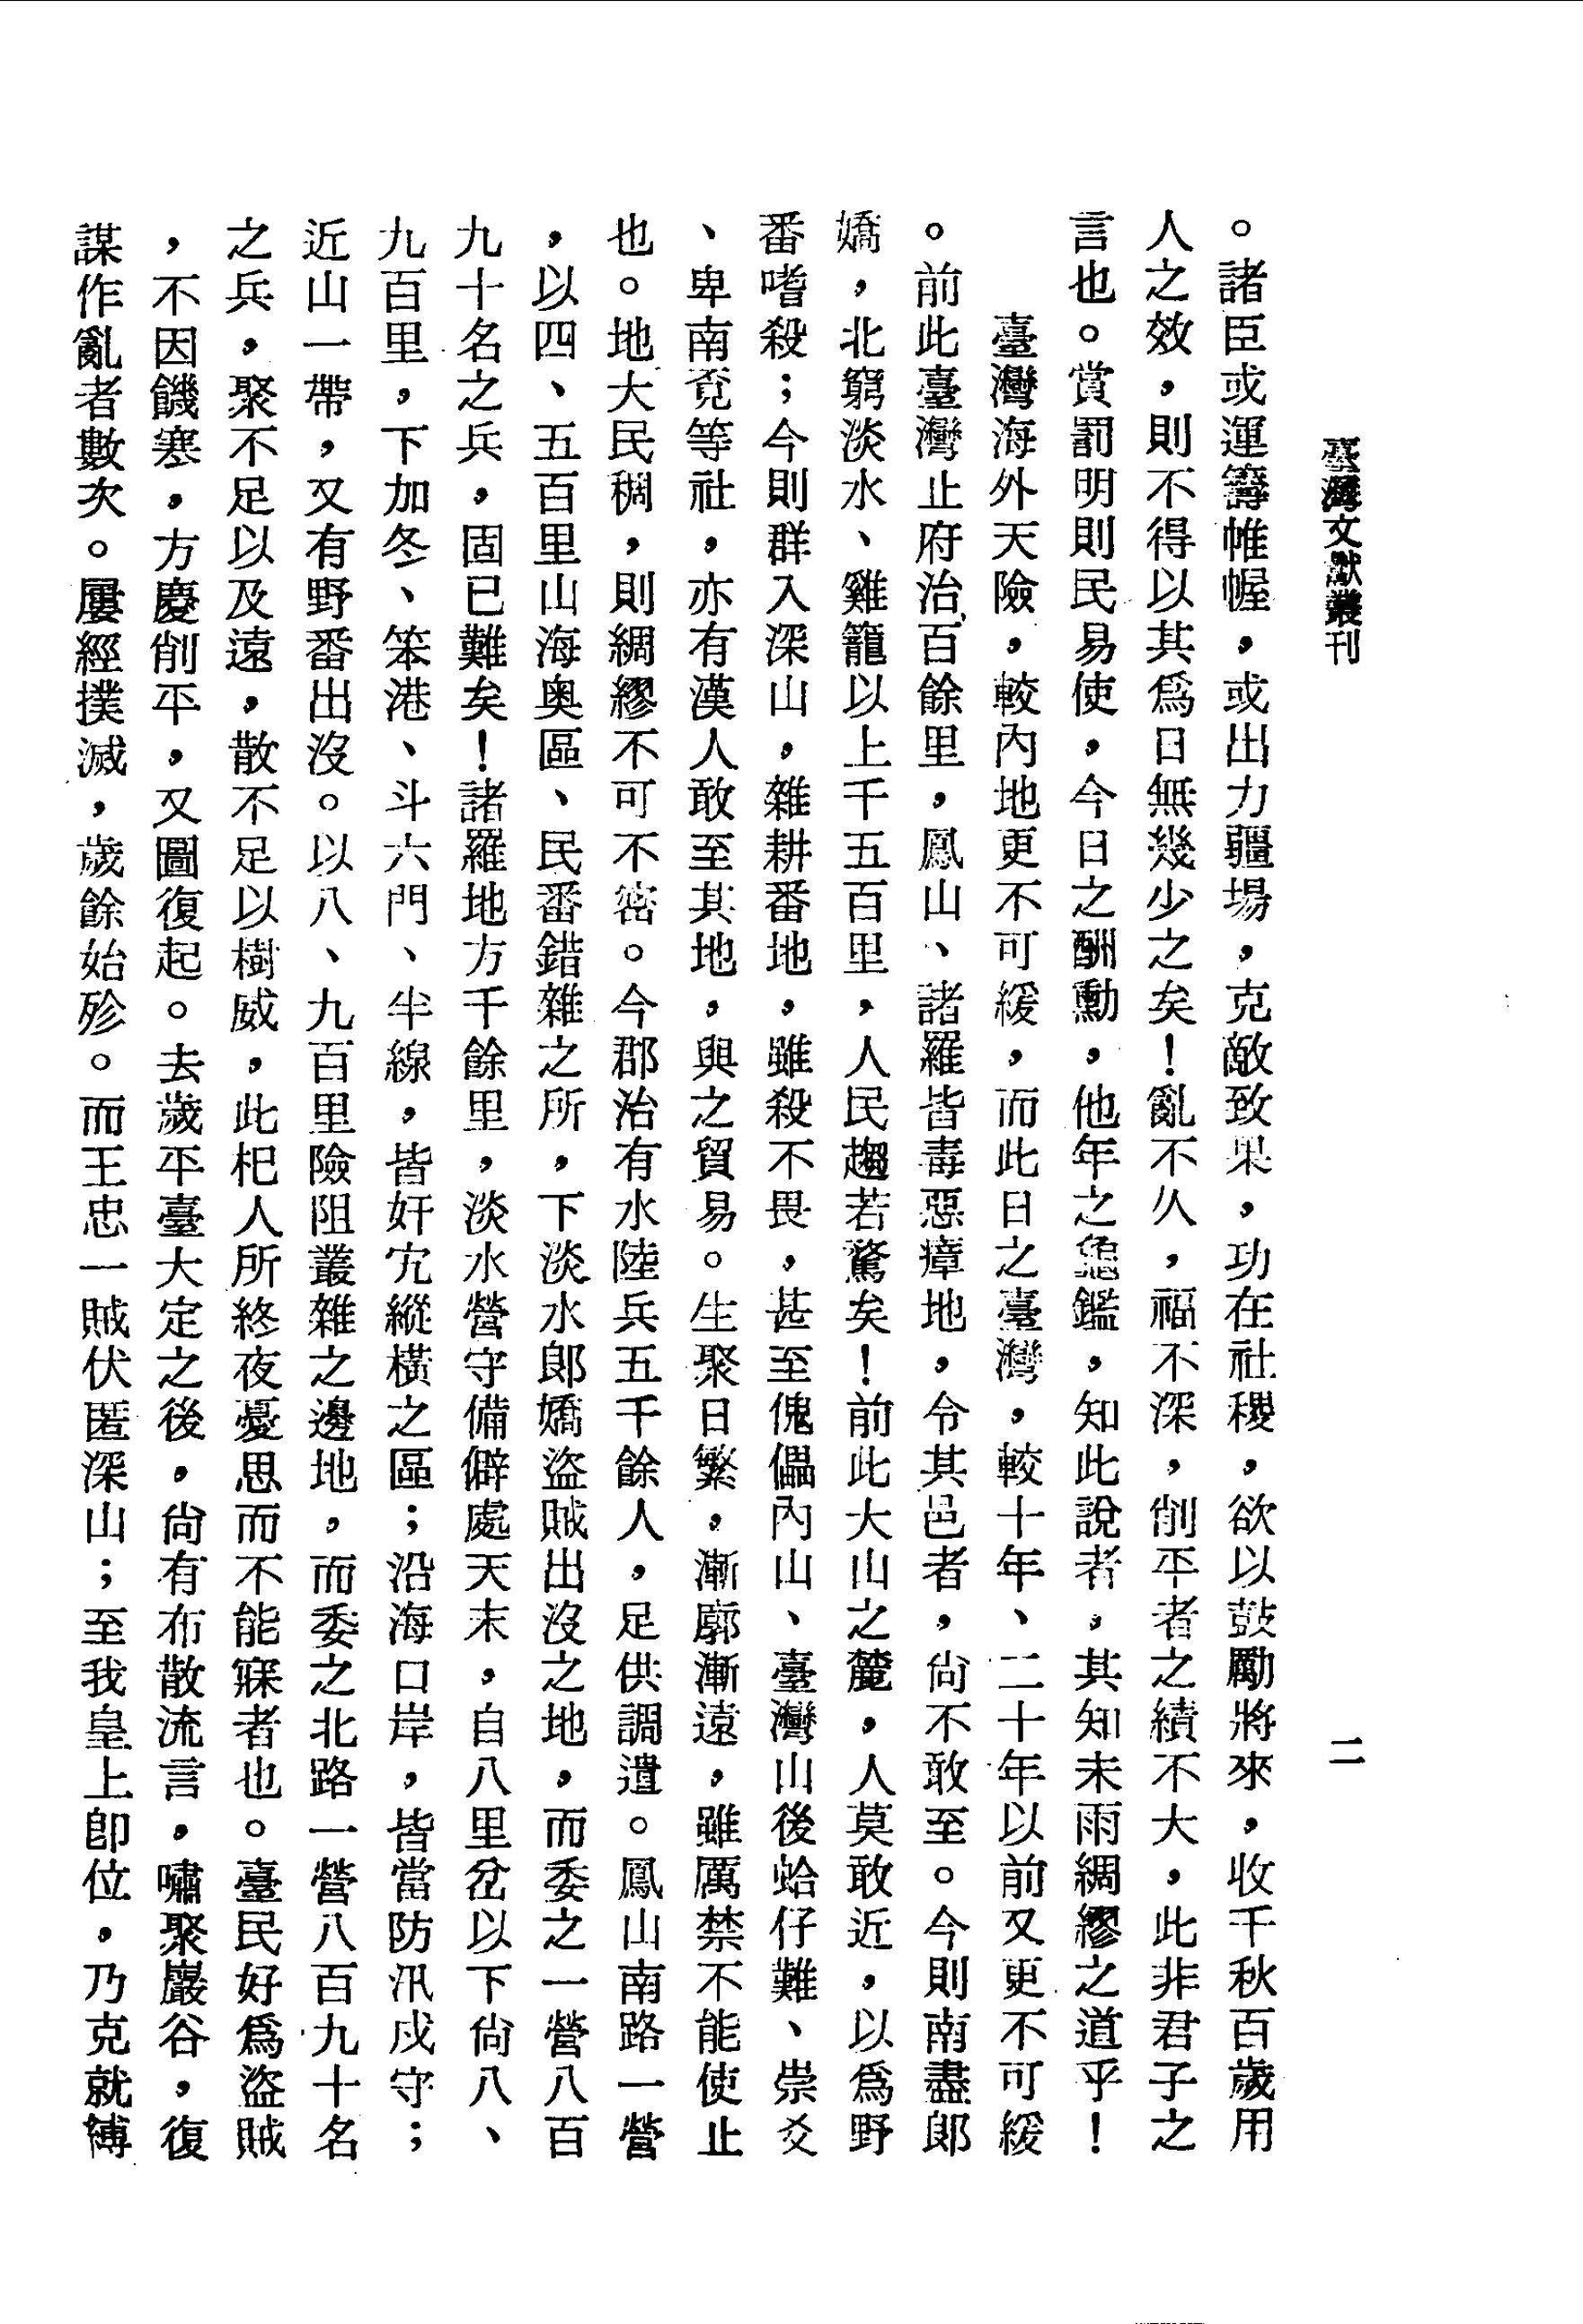 臺灣文獻叢刊
二
。諸臣或運籌帷幄，或出力疆場，克敵致果，功在社稷，欲以鼓勵將來，收千秋百歲用
人之效，則不得以其爲日無幾少之矣！亂不久，福不深，削平者之績不大，此非君子之
言也。賞罰明則民易使，今日之酬勳，他年之龜鑑，知此說者，其知未雨綢繆之道乎！
臺灣海外天險，較內地更不可緩，而此日之臺灣，較十年、二十年以前又更不可緩
。前此臺灣止府治百餘里，鳳山、諸羅皆毒惡瘴地，令其邑者，尙不敢至。今則南盡郞
嬌，北窮淡水、雞籠以上千五百里，人民趨若鶩矣！前此大山之麓，人莫敢近，以爲野
番嗜殺；今則群入深山，雜耕番地，雖殺不畏，甚至傀儡內山、臺灣山後蛤仔難、崇爻
、卑南覓等社，亦有漢人敢至其地，與之貿易。生聚日繁，漸廓漸遠，雖厲禁不能使止
也。地大民稠，則綢繆不可不密。今郡治有水陸兵五千餘人，足供調遣。鳳山南路一營
，以四、五百里山海奧區、民番錯雜之所，下淡水郞嬌盜賊出沒之地，而委之一營八百
九十名之兵，固已難矣！諸羅地方千餘里，淡水營守備僻處天末，自八里岔以下尙八、
九百里，下加冬、笨港、斗六門、半線，皆奸宄縱橫之區；沿海口岸，皆當防汛戍守；
近山一帶，又有野番出沒。以八、九百里險阻叢雜之邊地，而委之北路一營八百九十名
之兵，聚不足以及遠，散不足以樹威，此杞人所終夜憂思而不能寐者也。臺民好爲盜賊
，不因饑寒，方慶削平，又圖復起。去歲平臺大定之後，尙有布散流言，嘯聚巖谷，復
謀作亂者數次。屢經撲滅，歲餘始殄。而王忠一賊伏匿深山；至我皇上卽位，乃克就縛